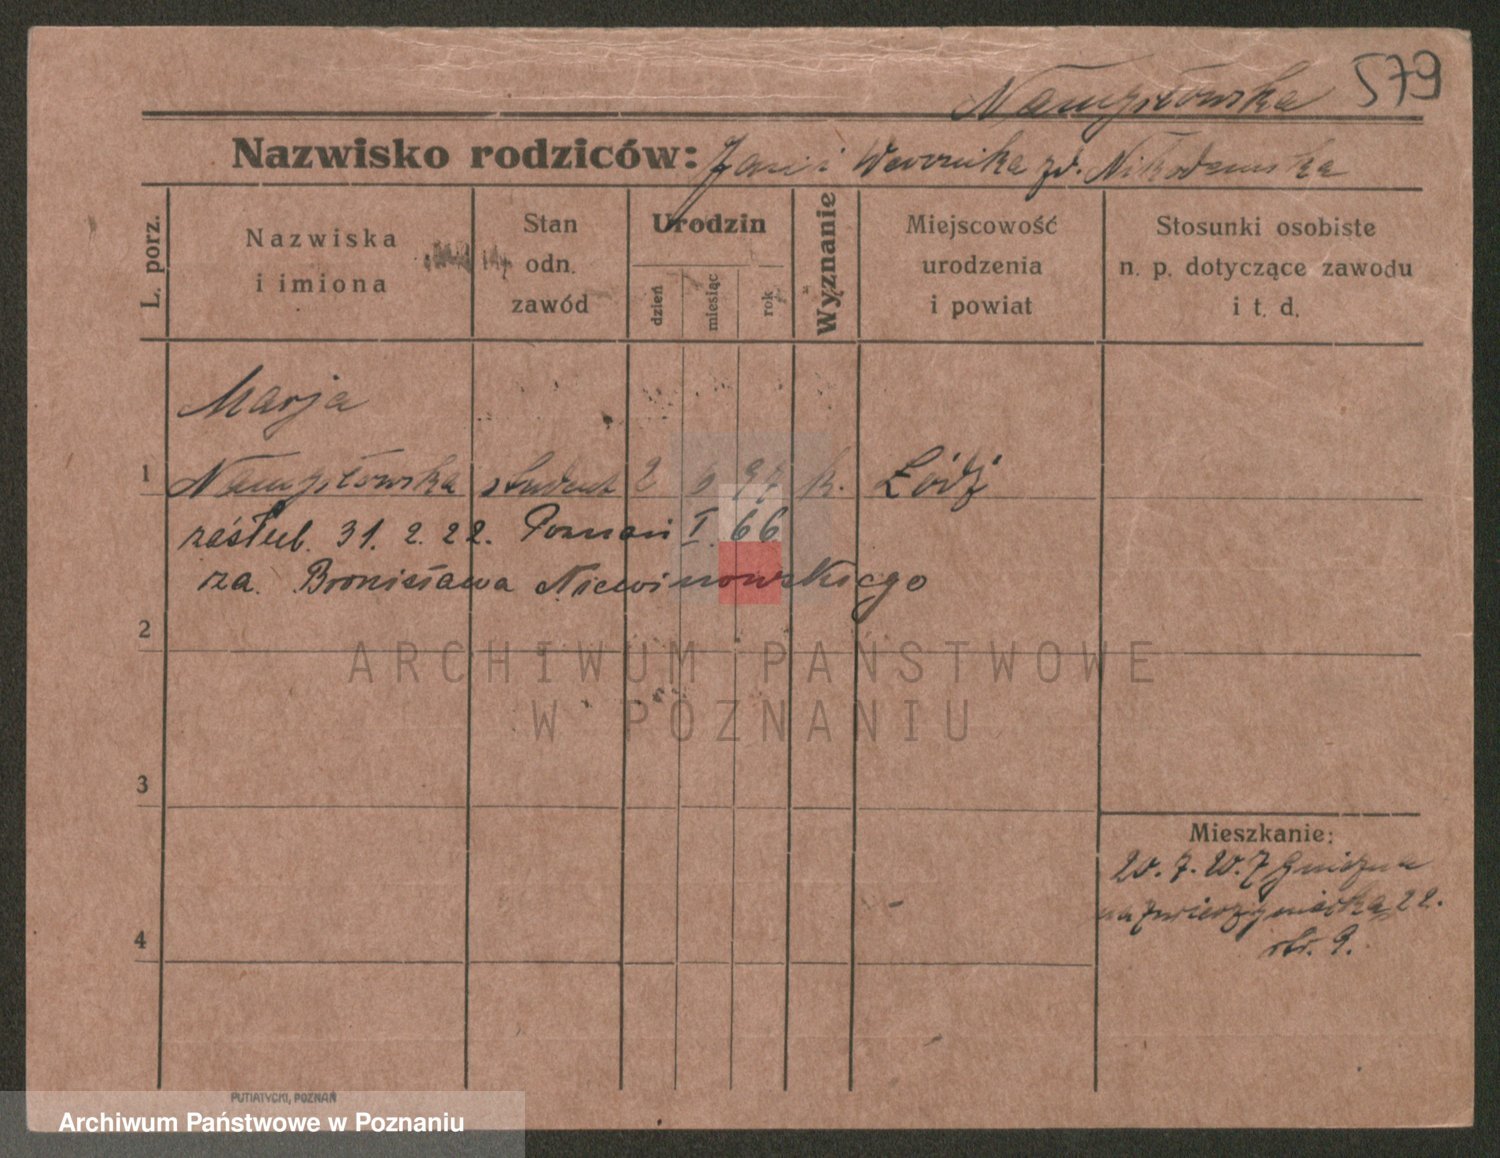 579
Namysłowska
Nazwisko rodziców: Jan i Weronika zd. Nikodemska
L. porz.
Nazwiska i imiona
Stan odn. zawód
Urodzin
dzień
miesiąc
rok
Wyznanie
Miejscowość urodzenia i powiat
Stosunki osobiste n. p. dotyczące zawodu i t. d.
Marja
1 Namysłowska student 2 6 97 k. Łódź
zaślub. 31. 2. 22. Poznań I. 66
za. Bronisława Niewinowskiego
2
ARCHIWUM PAŃSTWOWE
W POZNANIU
3
Mieszkanie:
20. 7. 20. z Gniezna
na Zwierzyniecka 22.
4
PUTIATYCKI, POZNAŃ
Archiwum Państwowe w Poznaniu